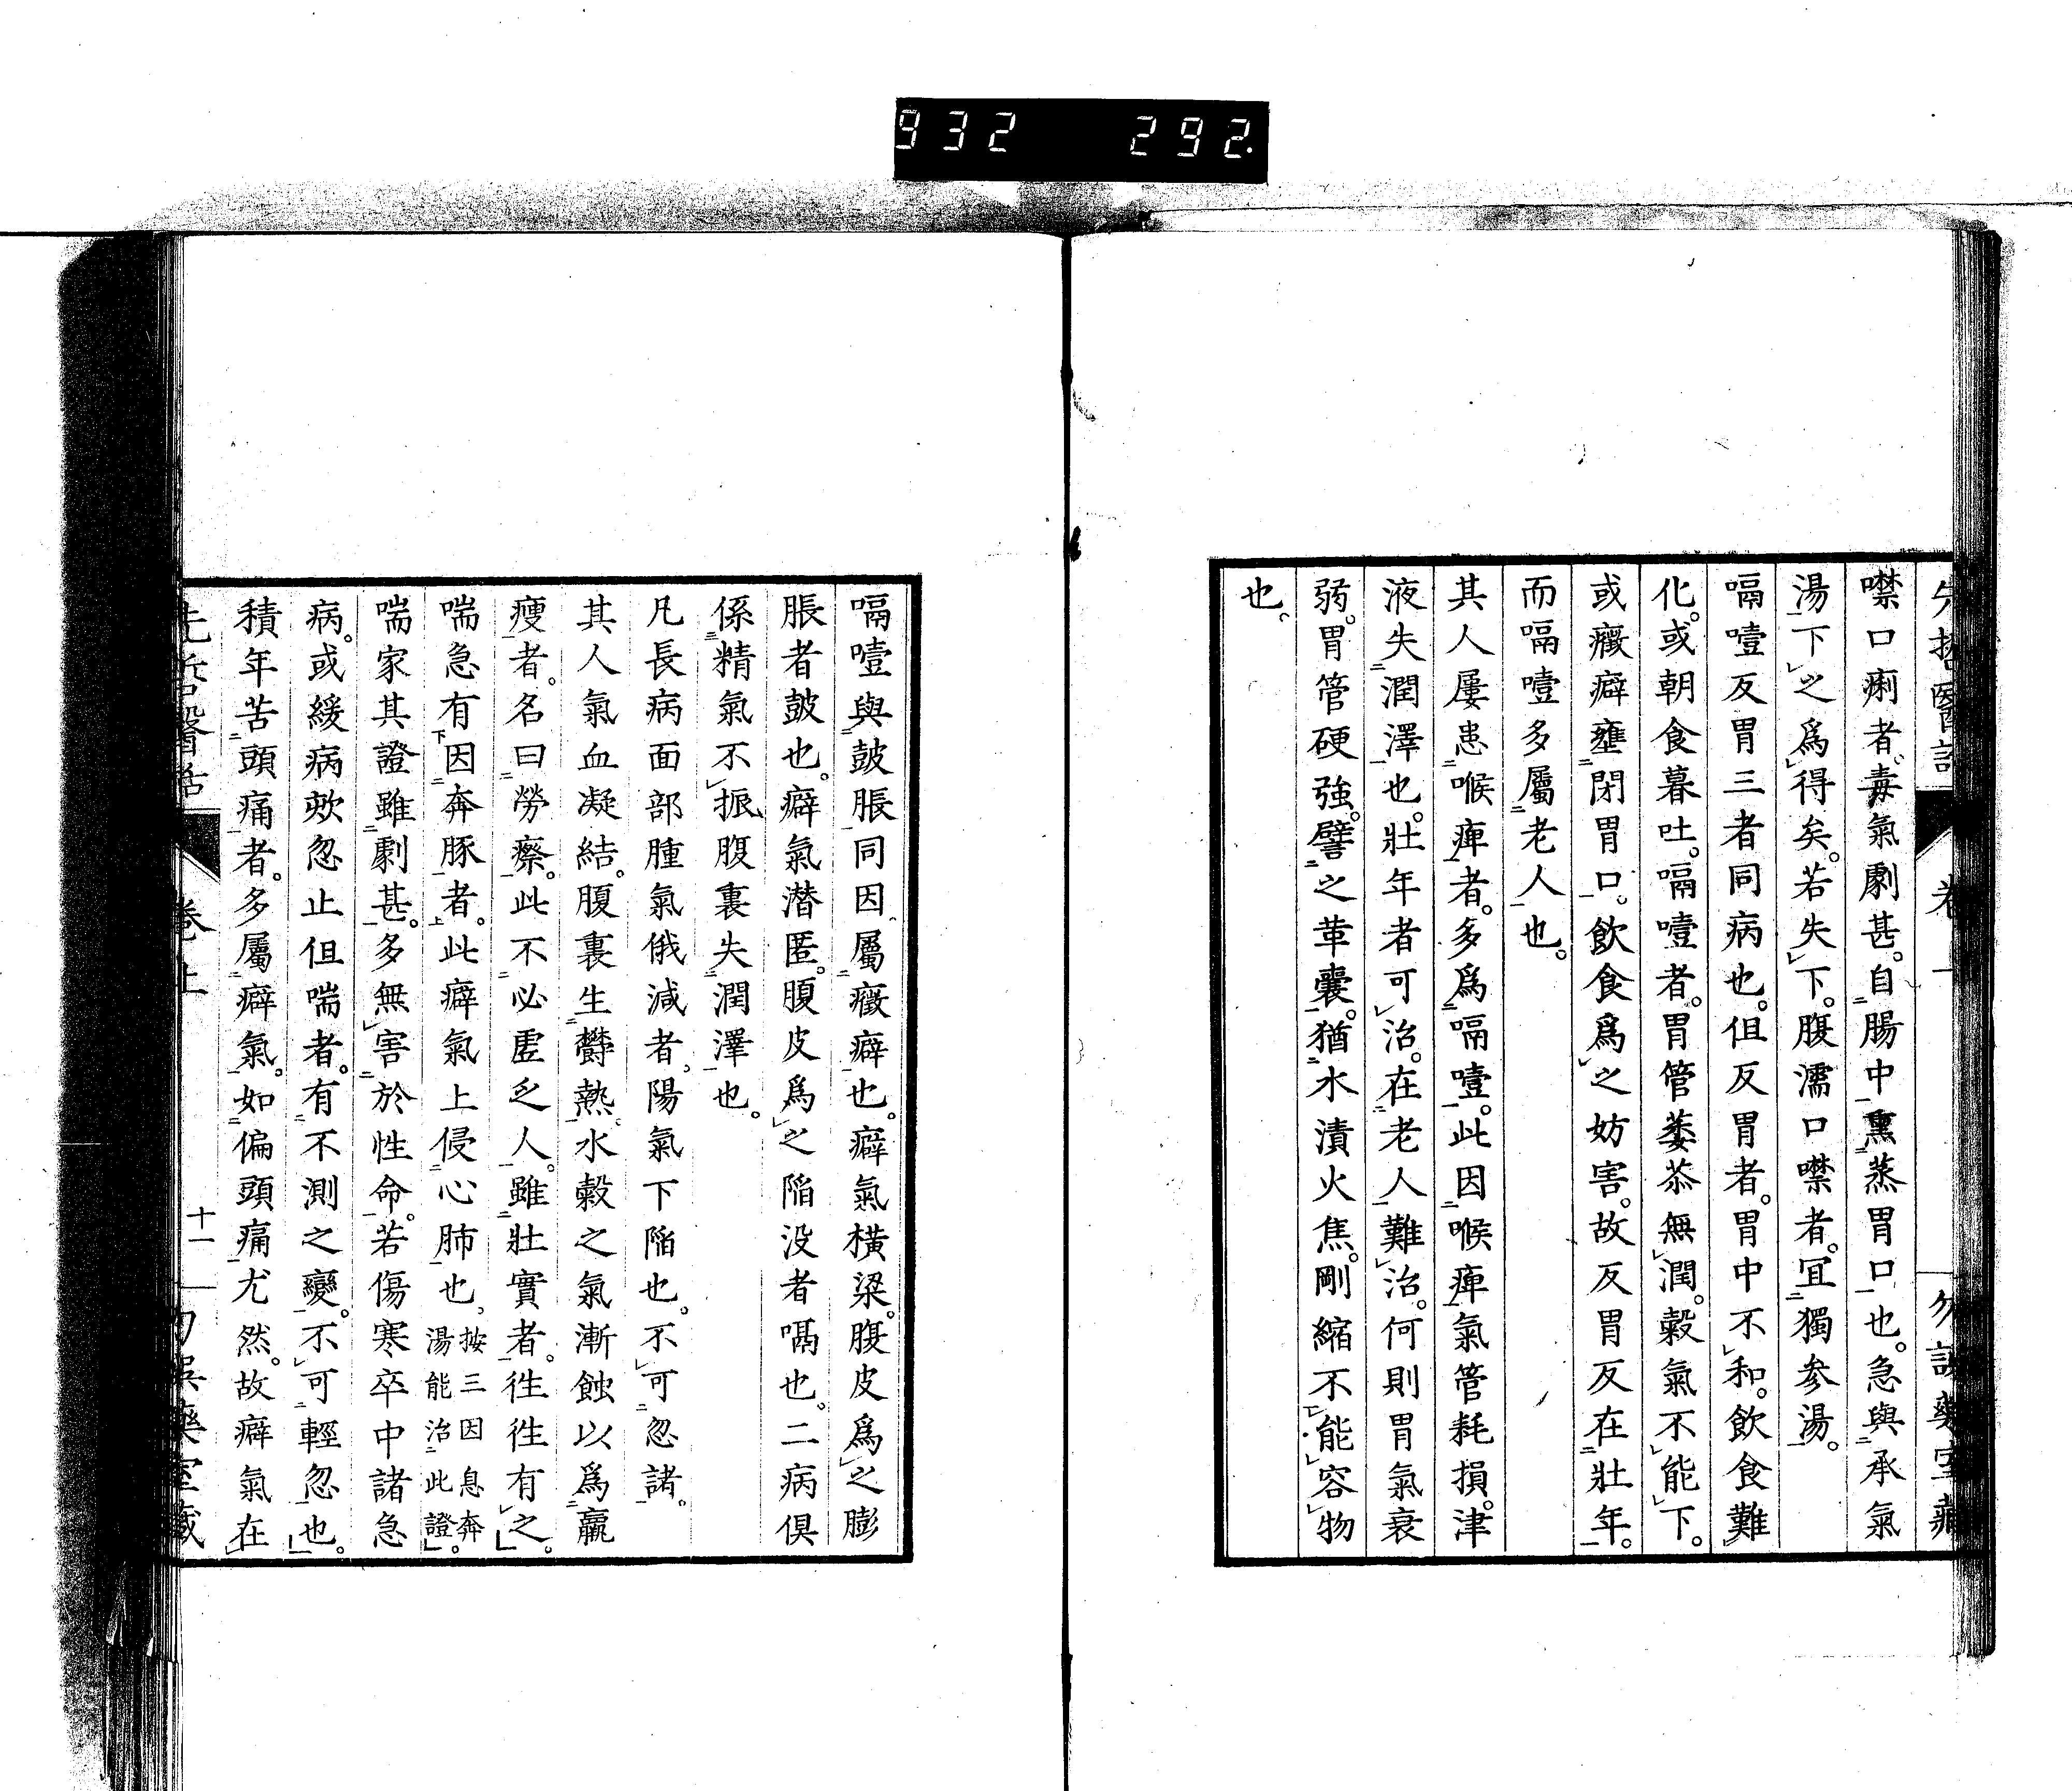 932 292
先哲醫話 卷上 勿誤藥室藏
噤口痢者。毒氣劇甚。自腸中熏蒸胃口也。急與承氣
湯下之爲得矣。若失下。腹濡口噤者。宜獨參湯。
嗝噎反胃三者同病也。但反胃者。胃中不和。飲食難
化。或朝食暮吐。嗝噎者。胃管萎苶無潤。穀氣不能下。
或癥癖壅閉胃口。飲食爲之妨害。故反胃反在壯年。
而嗝噎多屬老人也。
其人屢患喉痺者。多爲嗝噎。此因喉痺氣管耗損。津
液失潤澤也。壯年者可治。在老人難治。何則胃氣衰
弱。胃管硬強。譬之革囊。猶水漬火焦。剛縮不能容物
也。
嗝噎與鼓脹同因屬癥癖也。癖氣橫梁。腹皮爲之膨
脹者鼓也。癖氣潜匿。腹皮爲之陷没者嗝也。二病俱
係精氣不振腹裏失潤澤也。
凡長病面部腫氣俄減者。陽氣下陷也。不可忽諸。
其人氣血凝結。腹裏生欝熱。水穀之氣漸蝕以爲羸
瘦者。名曰勞瘵。此不必虛乏人。雖壯實者。徃徃有之。
喘急有因奔豚者。此癖氣上侵心肺也。按三因息奔湯能治此證。
喘家其證雖劇甚。多無害於性命。若傷寒卒中諸急
病。或緩病欬忽止但喘者。有不測之變。不可輕忽也。
積年苦頭痛者。多屬癖氣。如偏頭痛尤然。故癖氣在
先哲醫話 卷上 十一 勿誤藥室藏